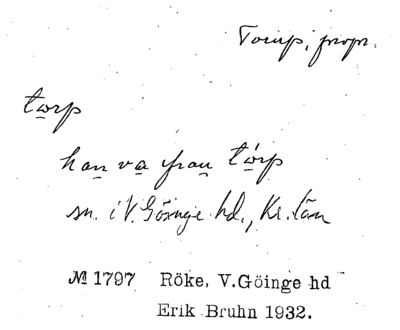 Torup, propr.
to̲rp
han̲ va̲ frau̲ tórp
sn. i V. Göinge hd., Kr. län
№ 1797 Röke, V.Göinge hd
Erik Bruhn 1932.